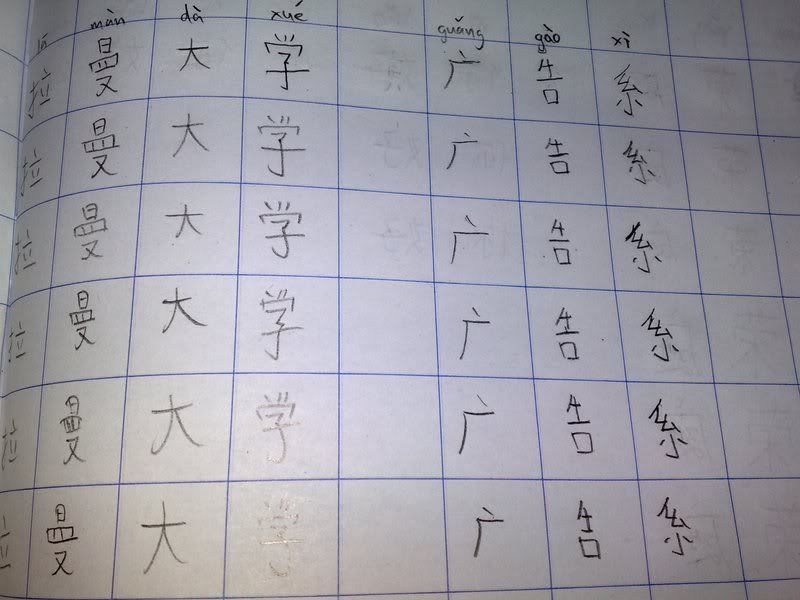 lā màn dà xué guǎng gào xì
拉曼大学 广告系
拉曼大学 广告系
拉曼大学 广告系
拉曼大学 广告系
拉曼大学 广告系
拉曼大学 广告系